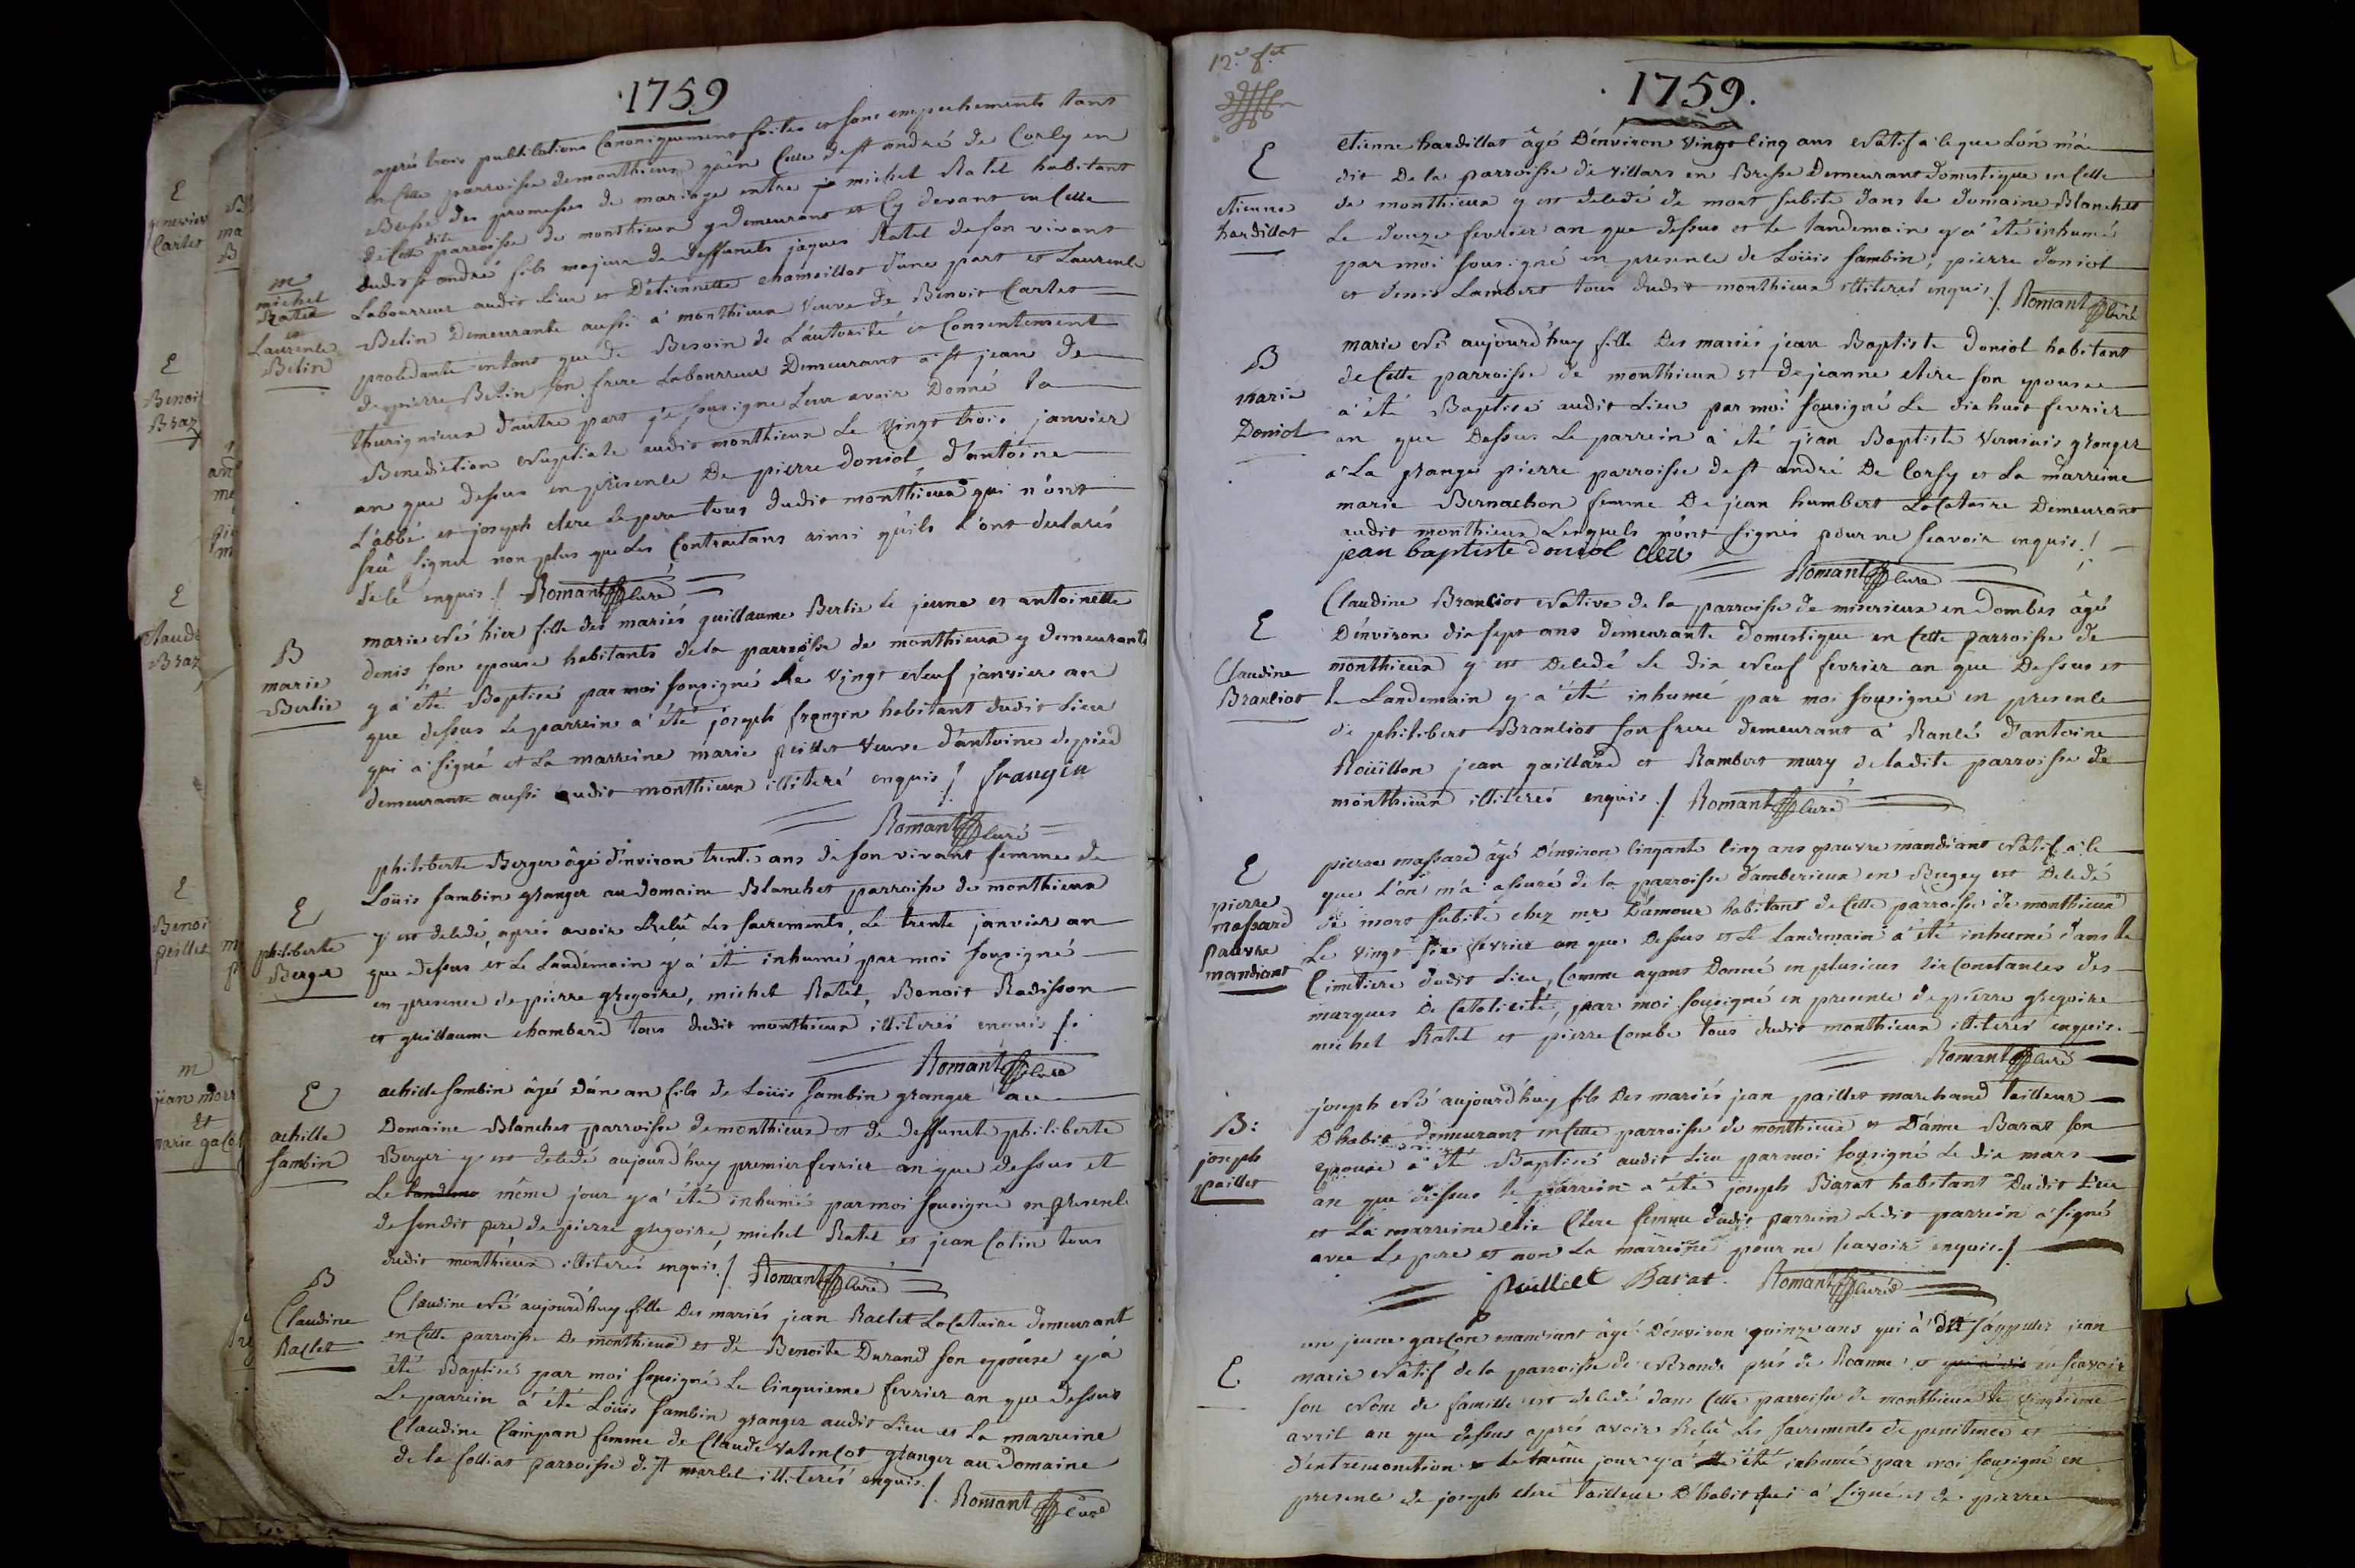 1759
après trois publications Canoniquement faites et sans empechements tant
en Cette parroisse de monthieux qu'en Celle de st andré de Corsy en
Bresse des promesses de mariage entre michel Ratel habitant
de Cette dite parroisse de monthieux y demeurant et Cy devant en Celle
dudit st andré fils majeur de deffunts jaques Ratel de son vivant
Laboureur audit Lieu et D'étiennette chamoillot d'une part et Laurence
Belin Demeurante aussi à monthieux veuve de Benoit Cartet
procedante entant que de Besoin de L'autorité et Consentement
de pierre Belin son frere Laboureur Demeurant à st jean de
thurignieux d'autre part j'ai sousigné Leur avoir Donné la
Benediction Nuptiale audit monthieux Le vingt trois janvier
an que dessus en présence De pierre doniol d'antoine
L'abbé et joseph clerc le pere tous dudit monthieux qui n'ont
sçû signer non plus que Les Contractans ainsi qu'ils L'ont declarés
de ce enquis ./ Romant Curé
m
michel
Ratel
et
Laurence
Belin
marie Née hier fille des mariés guillaume Berlie le jeune et antoinette
denis son epouse habitants de la parroisse de monthieux y demeurants
y a été Baptisée par moi sousigné Le vingt Neuf janvier an
que dessus Le parrein a été joseph frangin habitant dudit Lieu
qui a signé et La marreine marie peillet veuve d'antoine
demeurante aussi audit monthieux illiteré enquis ./ frangin
Romant Curé
B
marie
Berlie
philiberte Berger âgé d'environ trente ans de son vivant femme de
Loüis sambin granger au Domaine Blanchet parroisse de monthieux
y est decedé, après avoir Reçû Les sacrements, Le trente janvier an
que dessus et Le Landemain y a été inhumé par moi sousigné
en presence de pierre gregoire, michel Ratel, Benoit Radisson
et guillaume chambard tous dudit monthieux illiterés enquis ./.
Romant Curé
E
philiberte
Berger
achille sambin âgé d'un an fils de Loüis sambin granger au
Domaine Blanchet parroisse de monthieux et de deffuncte philiberte
Berger y est decedé aujourd'huy premier fevrier an que dessus et
Le même jour y a été inhumé par moi sousigné en presence
de sondit pere de pierre gregoire, michel Ratel et jean Cotin tous
dudit monthieux illiterés enquis ./ Romant Curé
E
achille
sambin
Claudine Née aujourd'huy fille Des mariés jean Raclet Locataire demeurant
en Cette parroisse De monthieux et de Benoite Durand son epouse y a
été Baptisée par moi sousigné Le Cinquieme fevrier an que dessus
Le parrein a été Loüis sambin granger audit Lieu et La marreine
Claudine Campan femme de Claude vatencot granger au Domaine
de la folliat parroisse de st marcel illiterés enquis ./. Romant Curé
B
Claudine
Raclet
12.
1759.
etienne hardillot âgé D'environ vingt Cinq ans Natif a ce que L'on m'a
dit De la parroisse de villars en Bresse Demeurant domestique en Cette
de monthieux y est decedé de mort subite dans le domaine Blanchet
Le douze fevrier an que dessus et le landemain y a été inhumé
par moi sousigné en presence de Loüis sambin, pierre doniol
et denis Lambert tous dudit monthieux illiterés enquis ./ Romant Curé
E
etienne
hardillot
marie Née aujourd'huy fille Des mariés jean Baptiste doniol habitant
de Cette parroisse de monthieux et de jeanne clerc son epouse
a été Baptisée audit Lieu par moi sousigné Le dix huit fevrier
an que Dessus Le parrein a été jean Baptiste granger
à La grange pierre parroisse de st andré De Corsy et La marreine
marie Bernachon femme De jean humbert Locataire Demeurant
audit monthieux Lesquels n'ont signés pour ne scavoir enquis ./
jean baptiste doniol clerc
Romant Curé
B
marie
Doniol
Claudine Branciot Native de la parroisse de miserieux en Dombes âgé
D'environ dix sept ans demeurante domestique en Cette parroisse de
monthieux y est decedé Le dix Neuf fevrier an que Dessus et
le Landemain y a été inhumé par moi sousigné en presence
de philibert Branciot son frere demeurant à Rancé d'antoine
Roüillon jean gaillard et Rambert mury de ladite parroisse de
monthieux illiterés enquis ./ Romant Curé
E
Claudine
Branciot
pierre massard âgé D'environ Cinqante Cinq ans pauvre mandiant Natif a ce
que L'on m'a assuré de la parroisse d'amberieux en Bugey est Decedé
de mort subite chez mr Lamour habitant de Cette parroisse de monthieux
Le vingt fevrier an que Dessus et Le Landemain a été inhumé dans le
Cimetiere dudit Lieu, Comme ayant Donné en plusieurs CirConstances des
marques De Catolicité, par moi sousigné en presence de pierre gregoire
michel Ratel et pierre Combe tous dudit monthieux illiterés enquis.
Romant Curé
E
pierre
massard
pauvre
mandiant
joseph Né aujourd'huy fils Des mariés jean paillet marchand tailleur
D'habit demeurant en Cette parroisse de monthieux et D'anne Barat son
epouse a été Baptisé audit Lieu par moi sousigné Le dix mars
an que dessus le parrein a été joseph Barat habitant Dudit Lieu
et La marreine Clerc femme dudit parrein Ledit parrein a signé
avec Le pere et non La marreine pour ne scavoir enquis ./
paillet Barat. Romant Curé
B:
joseph
paillet
un jeune garçon mandiant âgé D'environ quinze ans qui a dit s'appeler jean
marie Natif de la parroisse de Neronde près de Roanne et scavoir
son Nom de famille est decedé dans Cette parroisse de monthieux le vingtieme
avril an que dessus après avoir Reçû Les sacrements de penitence et
d'extremonction et le même jour y a été inhumé par moi sousigné en
presence de joseph clerc tailleur D'habit qui a signé et de pierre
E